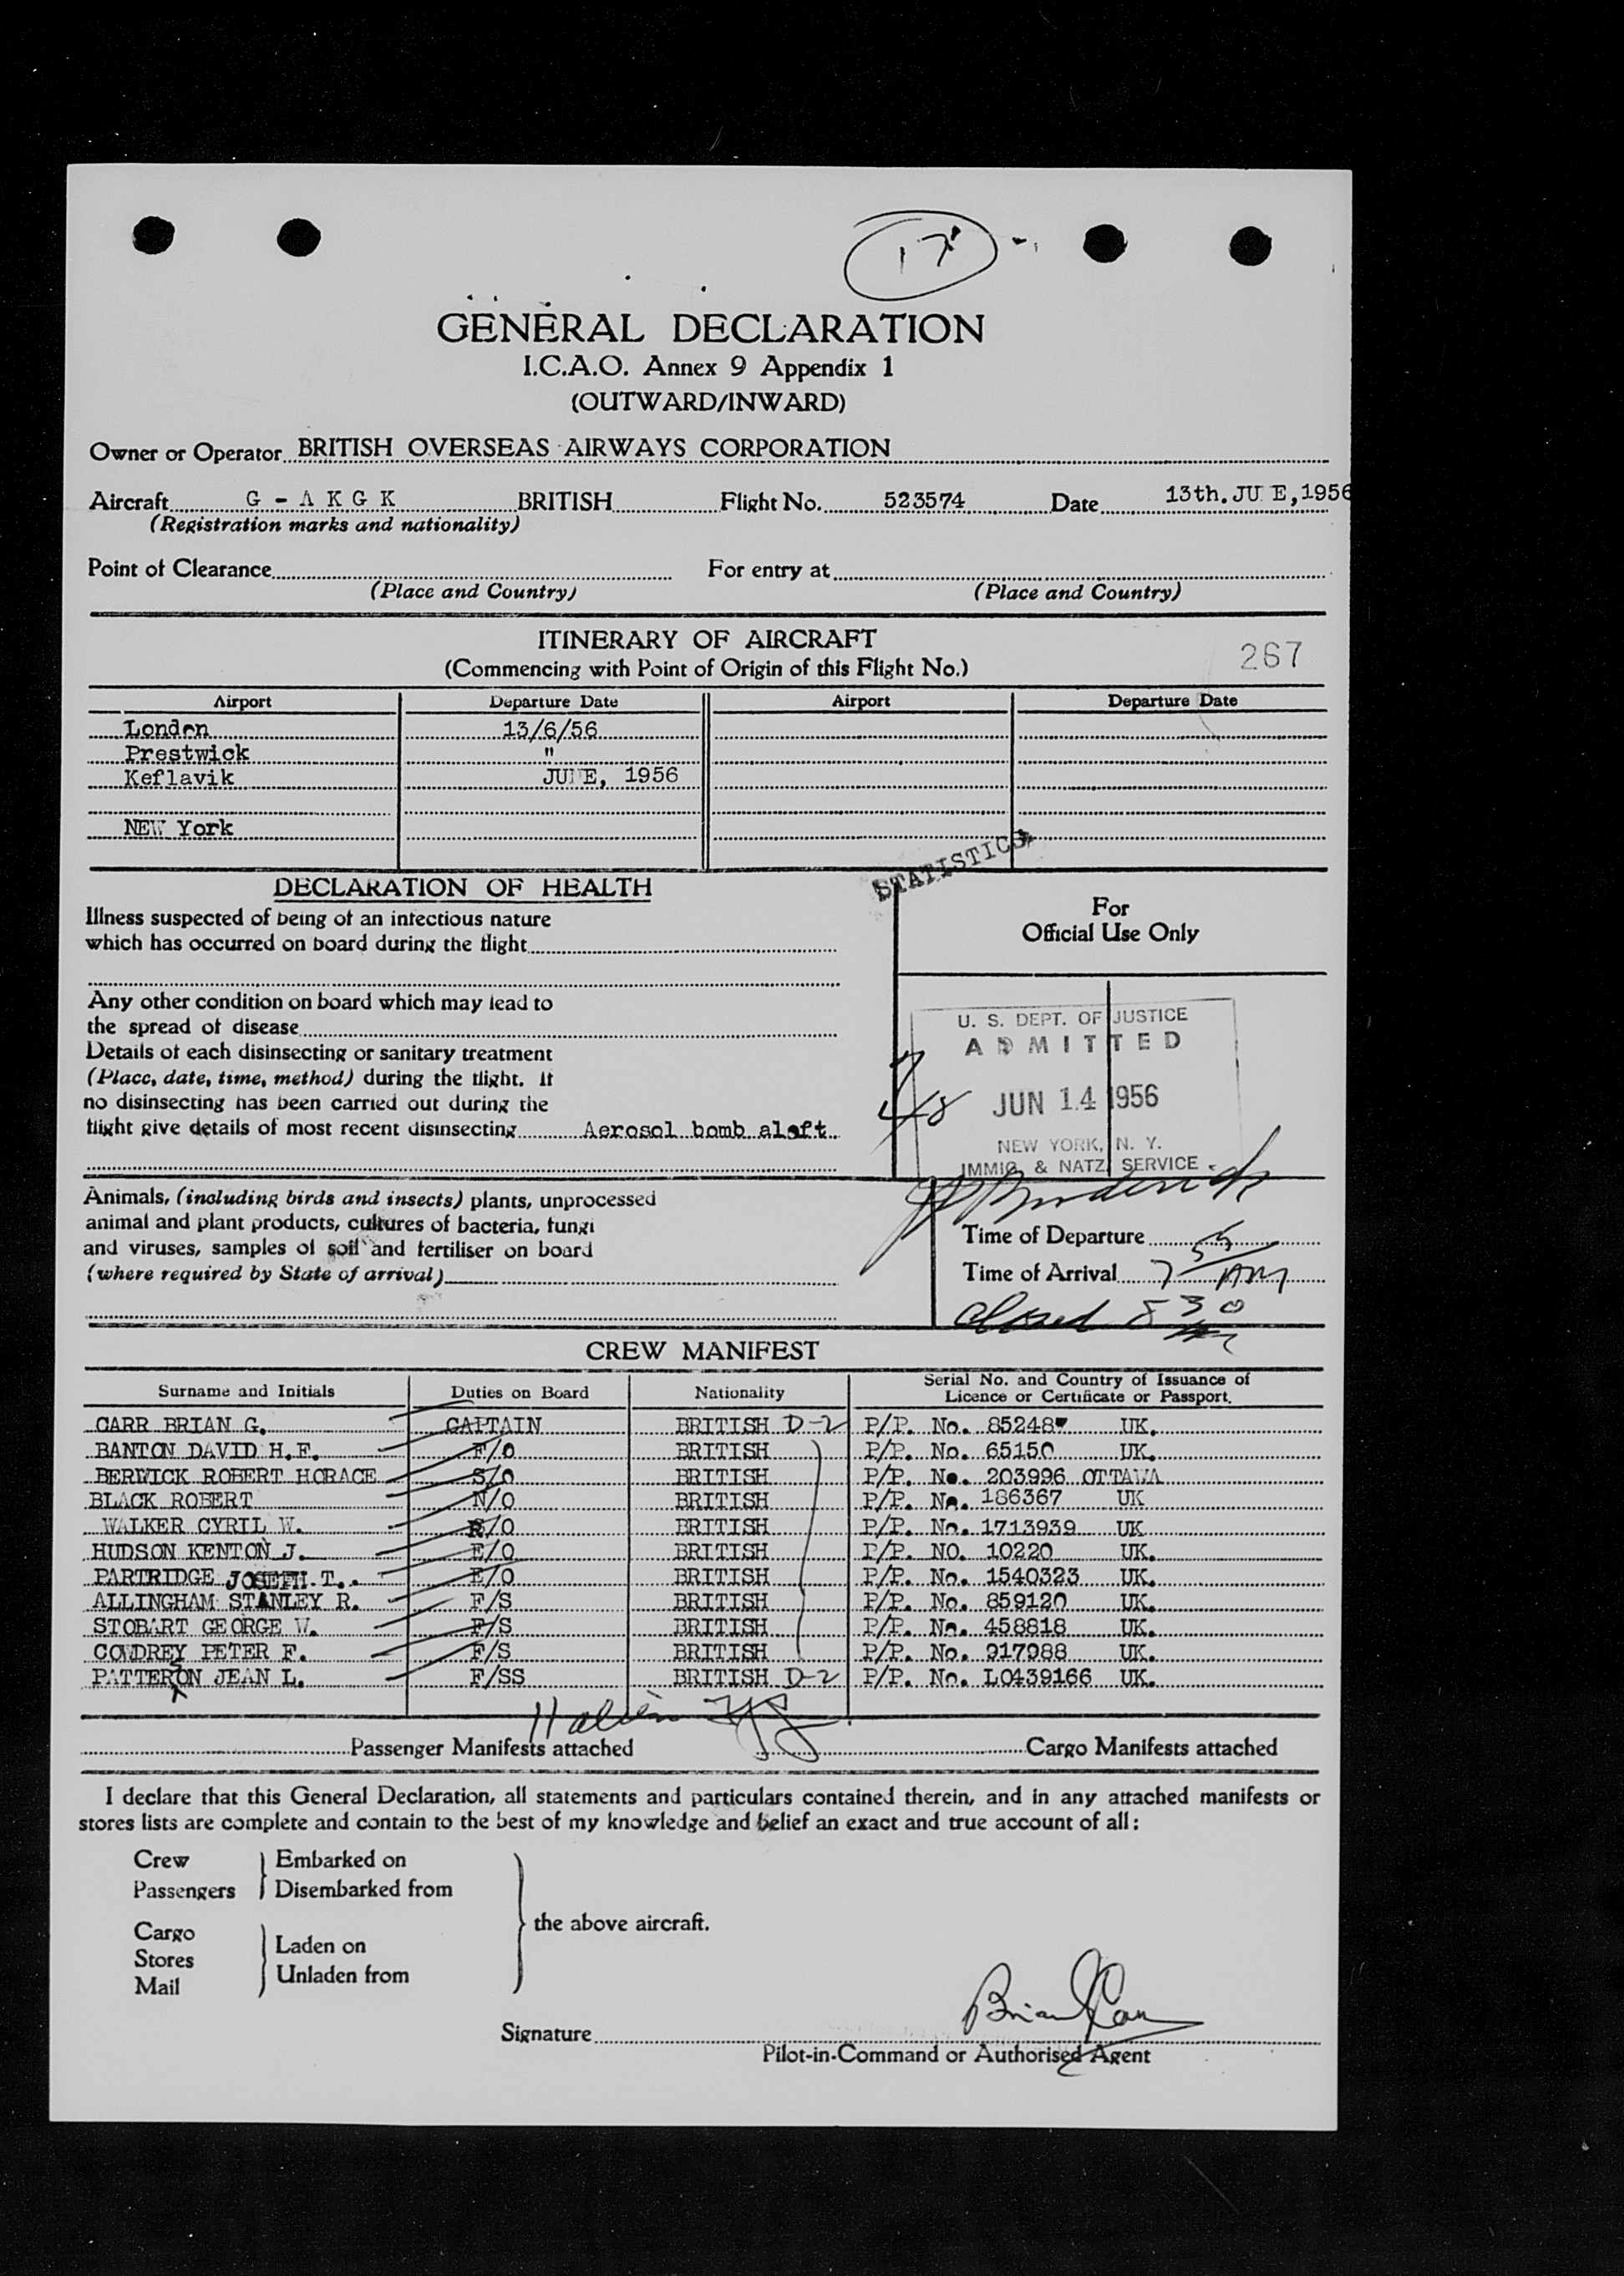 17
GENERAL DECLARATION
I.C.A.O. Annex 9 Appendix 1
(OUTWARD/INWARD)
Owner or Operator BRITISH OVERSEAS AIRWAYS CORPORATION
Aircraft G - A K G K BRITISH Flight No. 523574 Date 13th. JU E, 1956
(Registration marks and nationality)
Point of Clearance For entry at
(Place and Country) (Place and Country)
ITINERARY OF AIRCRAFT
(Commencing with Point of Origin of this Flight No.) 267
Airport Departure Date Airport Departure Date
London 13/6/56
Prestwick "
Keflavik JUNE, 1956
NEW York
STATISTICS
DECLARATION OF HEALTH
Illness suspected of being of an infectious nature
which has occurred on board during the flight
Any other condition on board which may lead to
the spread of disease
Details of each disinsecting or sanitary treatment
(Place, date, time, method) during the flight. If
no disinsecting has been carried out during the
flight give details of most recent disinsecting Aerosol bomb aloft.
For
Official Use Only
U. S. DEPT. OF JUSTICE
ADMITTED
JUN 14 1956
NEW YORK, N. Y.
IMMIG. & NATZ. SERVICE
Animals, (including birds and insects) plants, unprocessed
animal and plant products, cultures of bacteria, fungi
and viruses, samples of soil and fertiliser on board
(where required by State of arrival)
Time of Departure
Time of Arrival 7 55 AM
Closed 8 30
CREW MANIFEST
Surname and Initials Duties on Board Nationality Serial No. and Country of Issuance of Licence or Certificate or Passport.
CARR BRIAN G. CAPTAIN BRITISH D-2 P/P. No. 85248 UK.
BANTON DAVID H.F. F/O BRITISH P/P. No. 65150 UK.
BERWICK ROBERT HORACE S/O BRITISH P/P. No. 203996 OTTAWA
BLACK ROBERT N/O BRITISH P/P. No. 186367 UK
WALKER CYRIL W. R/O BRITISH P/P. No. 1713939 UK
HUDSON KENTON J. E/O BRITISH P/P. NO. 10220 UK.
PARTRIDGE JOSEPH. T. E/O BRITISH P/P. No. 1540323 UK.
ALLINGHAM STANLEY R. F/S BRITISH P/P. No. 859120 UK.
STOBART GEORGE W. F/S BRITISH P/P. No. 458818 UK.
COWDREY PETER F. F/S BRITISH P/P. No. 917988 UK.
PATTERSON JEAN L. F/SS BRITISH D-2 P/P. No. L0439166 UK.
Passenger Manifests attached Cargo Manifests attached
I declare that this General Declaration, all statements and particulars contained therein, and in any attached manifests or
stores lists are complete and contain to the best of my knowledge and belief an exact and true account of all:
Crew Embarked on
Passengers Disembarked from
the above aircraft.
Cargo
Stores Laden on
Mail Unladen from
Signature Brian Carr
Pilot-in-Command or Authorised Agent